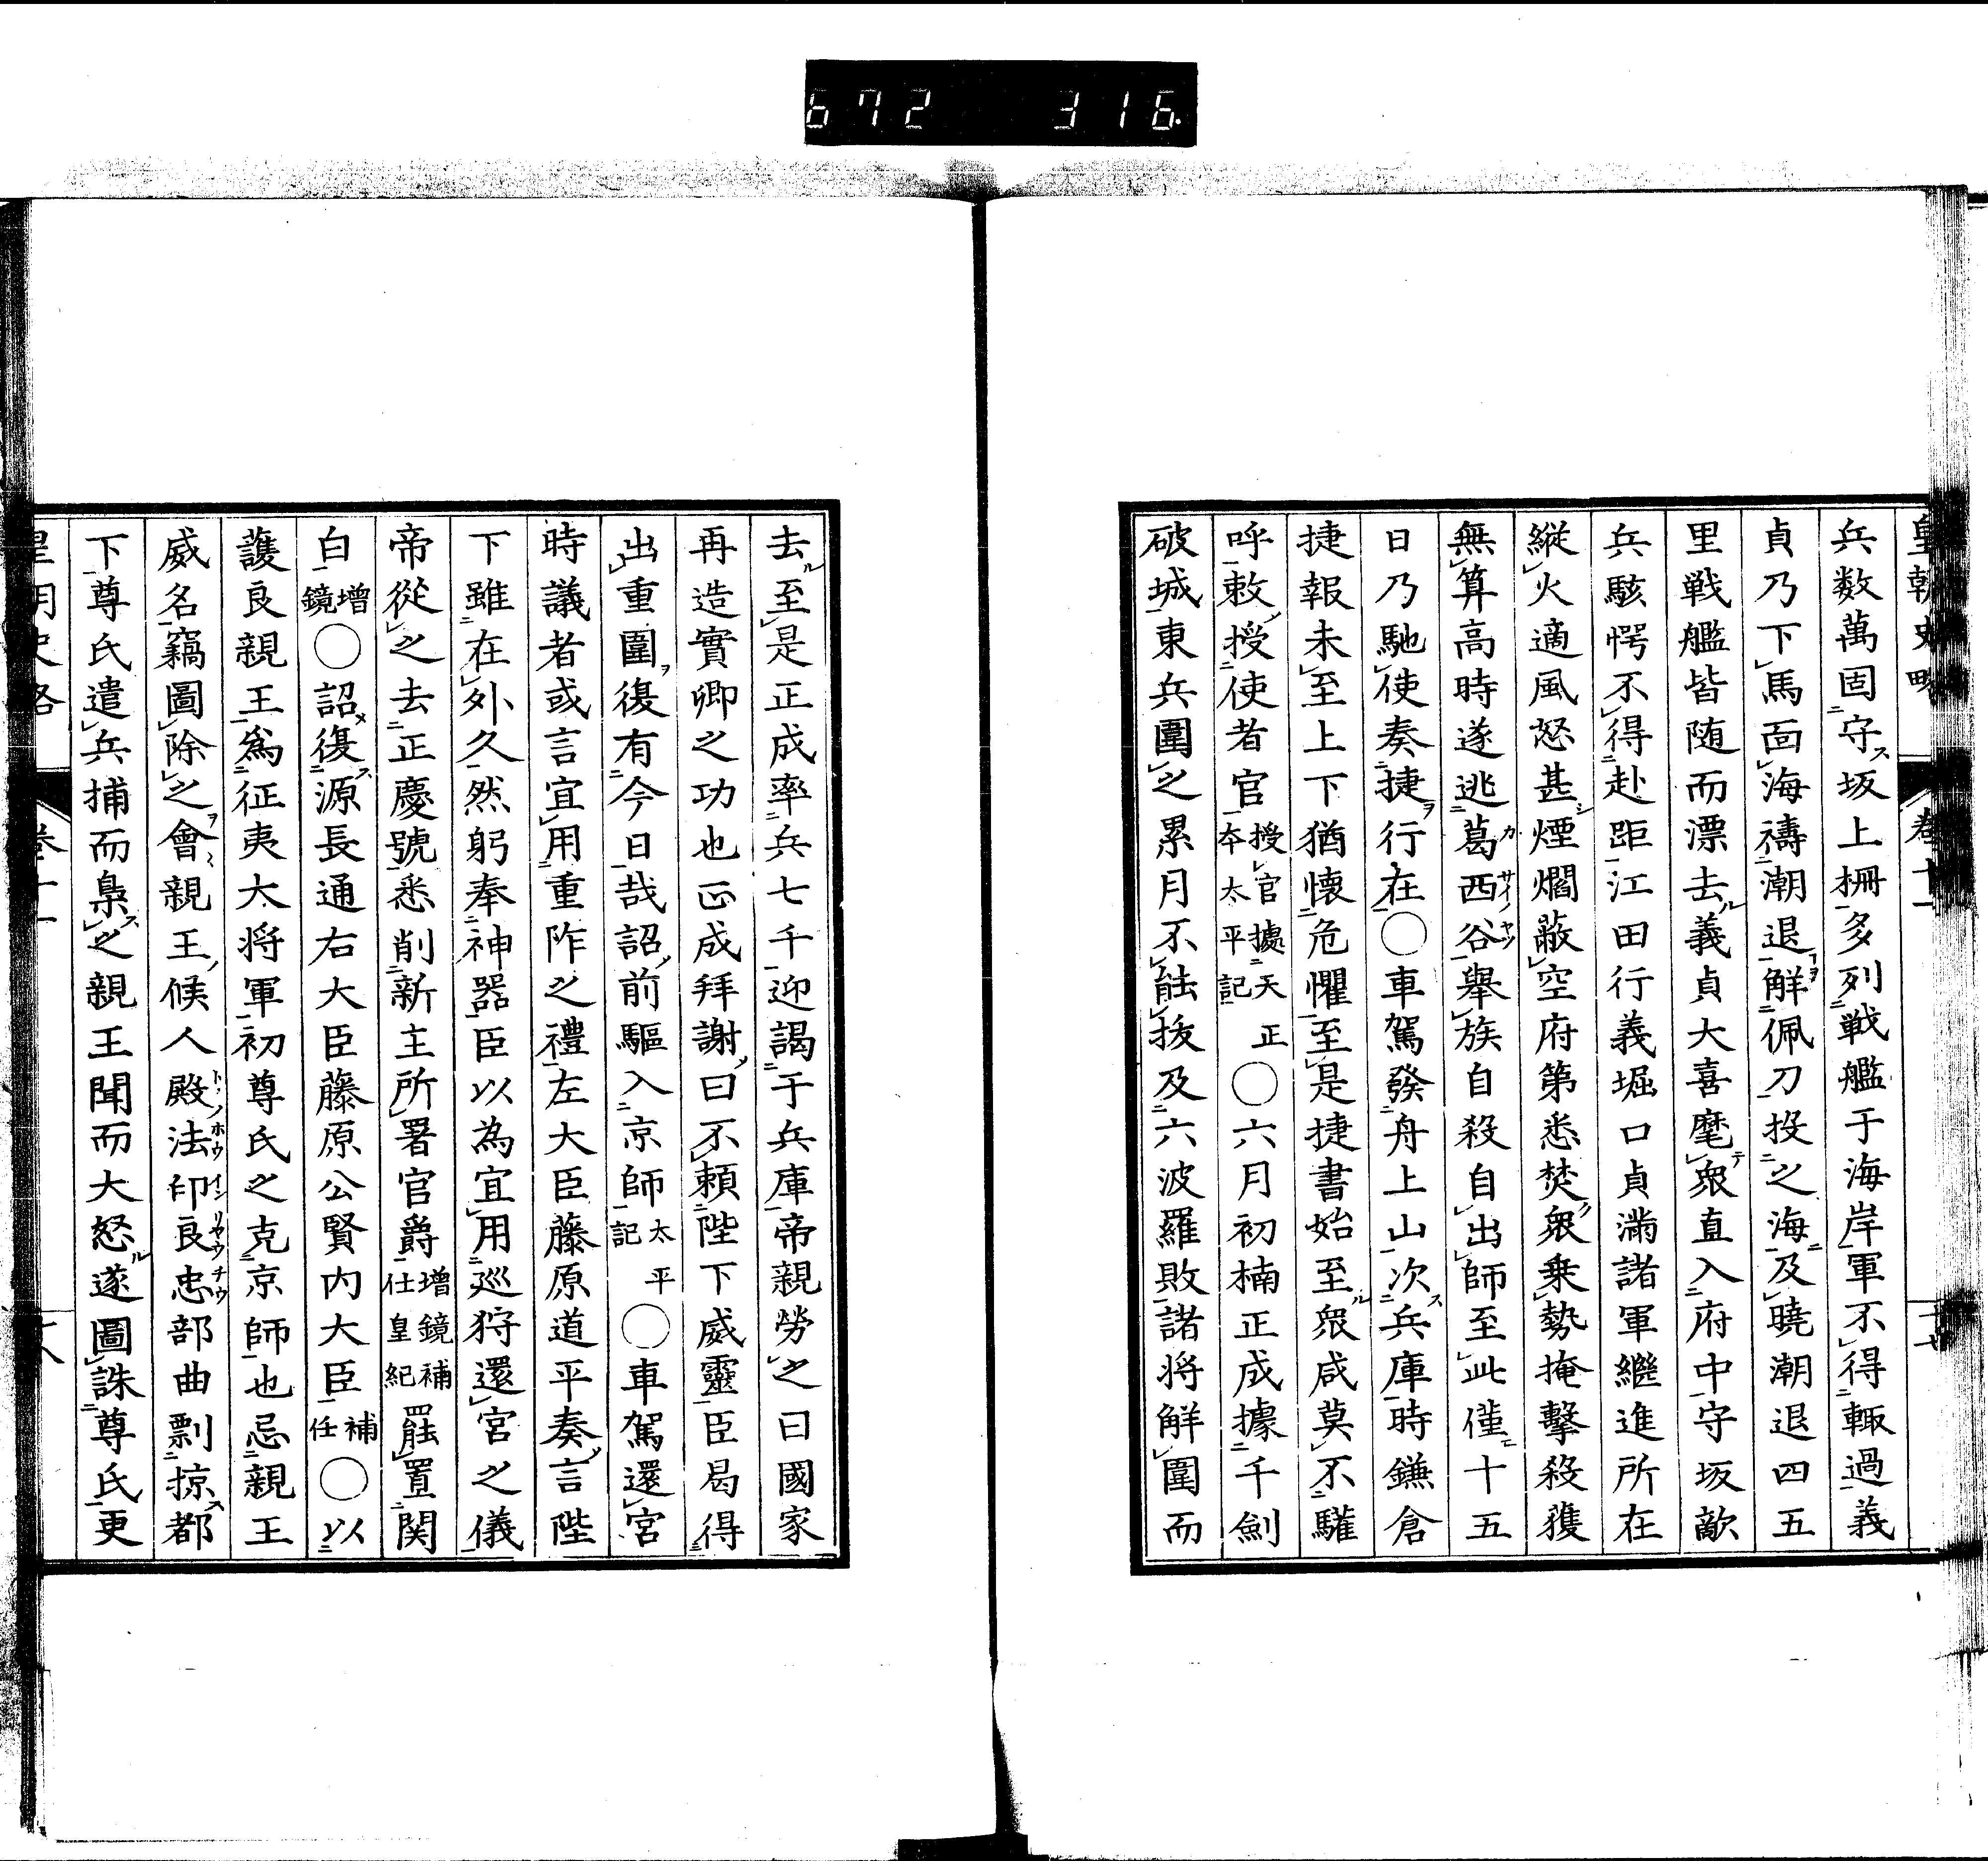 672 316
皇朝史略 卷十一 十七
兵数萬固守坂上柵多列戦艦于海岸軍不得輙過義
貞乃下馬面海禱潮退解佩刀投之海及曉潮退四五
里戦艦皆随而漂去義貞大喜麾衆直入府中守坂敵
兵駭愕不得赴距江田行義堀口貞滿諸軍繼進所在
縱火適風怒甚煙爓蔽空府第悉焚衆乗勢掩擊殺獲
無算高時遂逃葛西谷舉族自殺自出師至此僅十五
日乃馳使奏捷行在○車駕發舟上山次兵庫時鎌倉
捷報未至上下猶懷危懼至是捷書始至衆咸莫不驩
呼敕授使者官授官據天正本太平記○六月初楠正成據千劍
破城東兵圍之累月不能抜及六波羅敗諸将解圍而
去至是正成率兵七千迎謁于兵庫帝親勞之曰國家
再造實卿之功也正成拜謝曰不頼陛下威靈臣曷得
出重圍復有今日哉詔前驅入京師太平記○車駕還宮
時議者或言宜用重阼之禮左大臣藤原道平奏言陛
下雖在外久然躬奉神器臣以為宜用巡狩還宮之儀
帝從之去正慶號悉削新主所署官爵增鏡補任皇紀罷置関
白增鏡○詔復源長通右大臣藤原公賢内大臣補任○以
護良親王爲征夷大将軍初尊氏之克京師也忌親王
威名竊圖除之會親王候人殿法印良忠部曲剽掠都
下尊氏遣兵捕而梟之親王聞而大怒遂圖誅尊氏更
皇朝史略 卷十一 十八